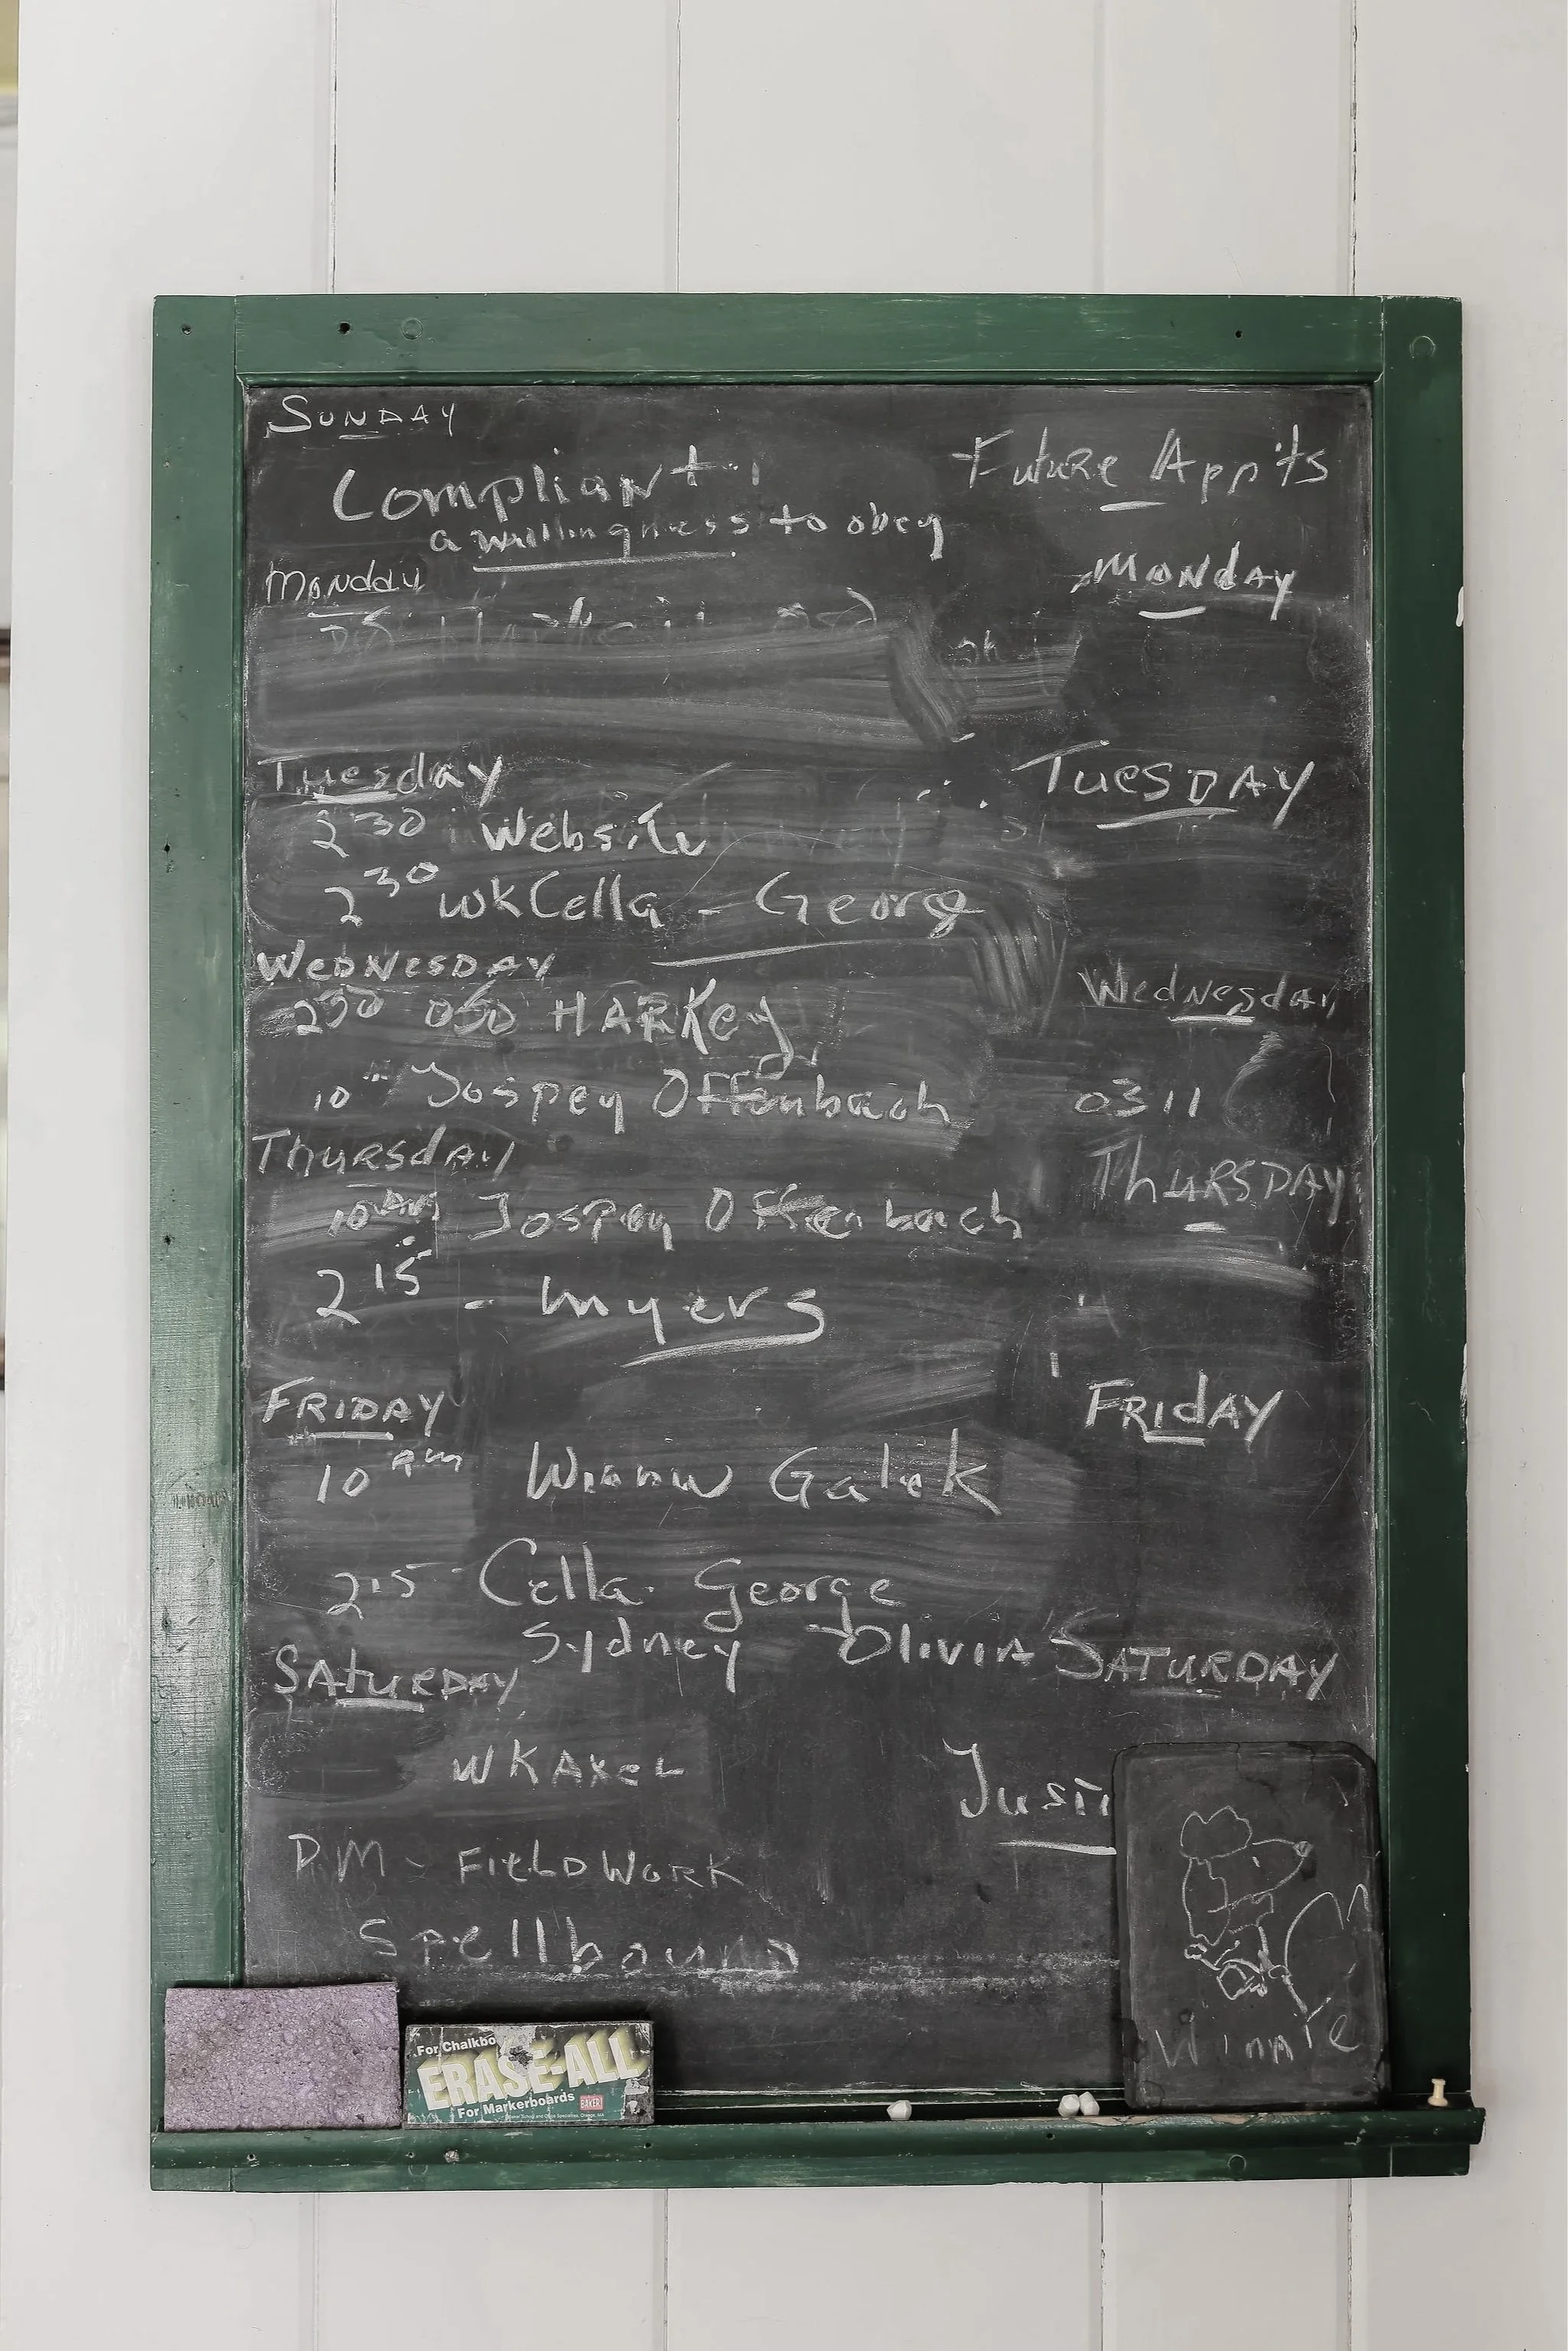 SUNDAY
Compliant
a willingness to obey
Monday
Tuesday
2 30 Website
2 30 wk Cella - George
WEDNESDAY
2 30 HARKey
10 Jospey Offenbach
Thursday
10 AM Jospey Offenbach
2 15 - myers
FRIDAY
10 am Galek
2 15 - Cella George
Sydney Olivia
SATURDAY
WK AxeL
P.M - FIELD WORK
Spellbound
Future App'ts
Monday
TUESDAY
Wednesday
0311
THURSDAY
FRIdAY
SATURDAY
Justi
Winnie
For Chalkbo
ERASE-ALL
For Markerboards